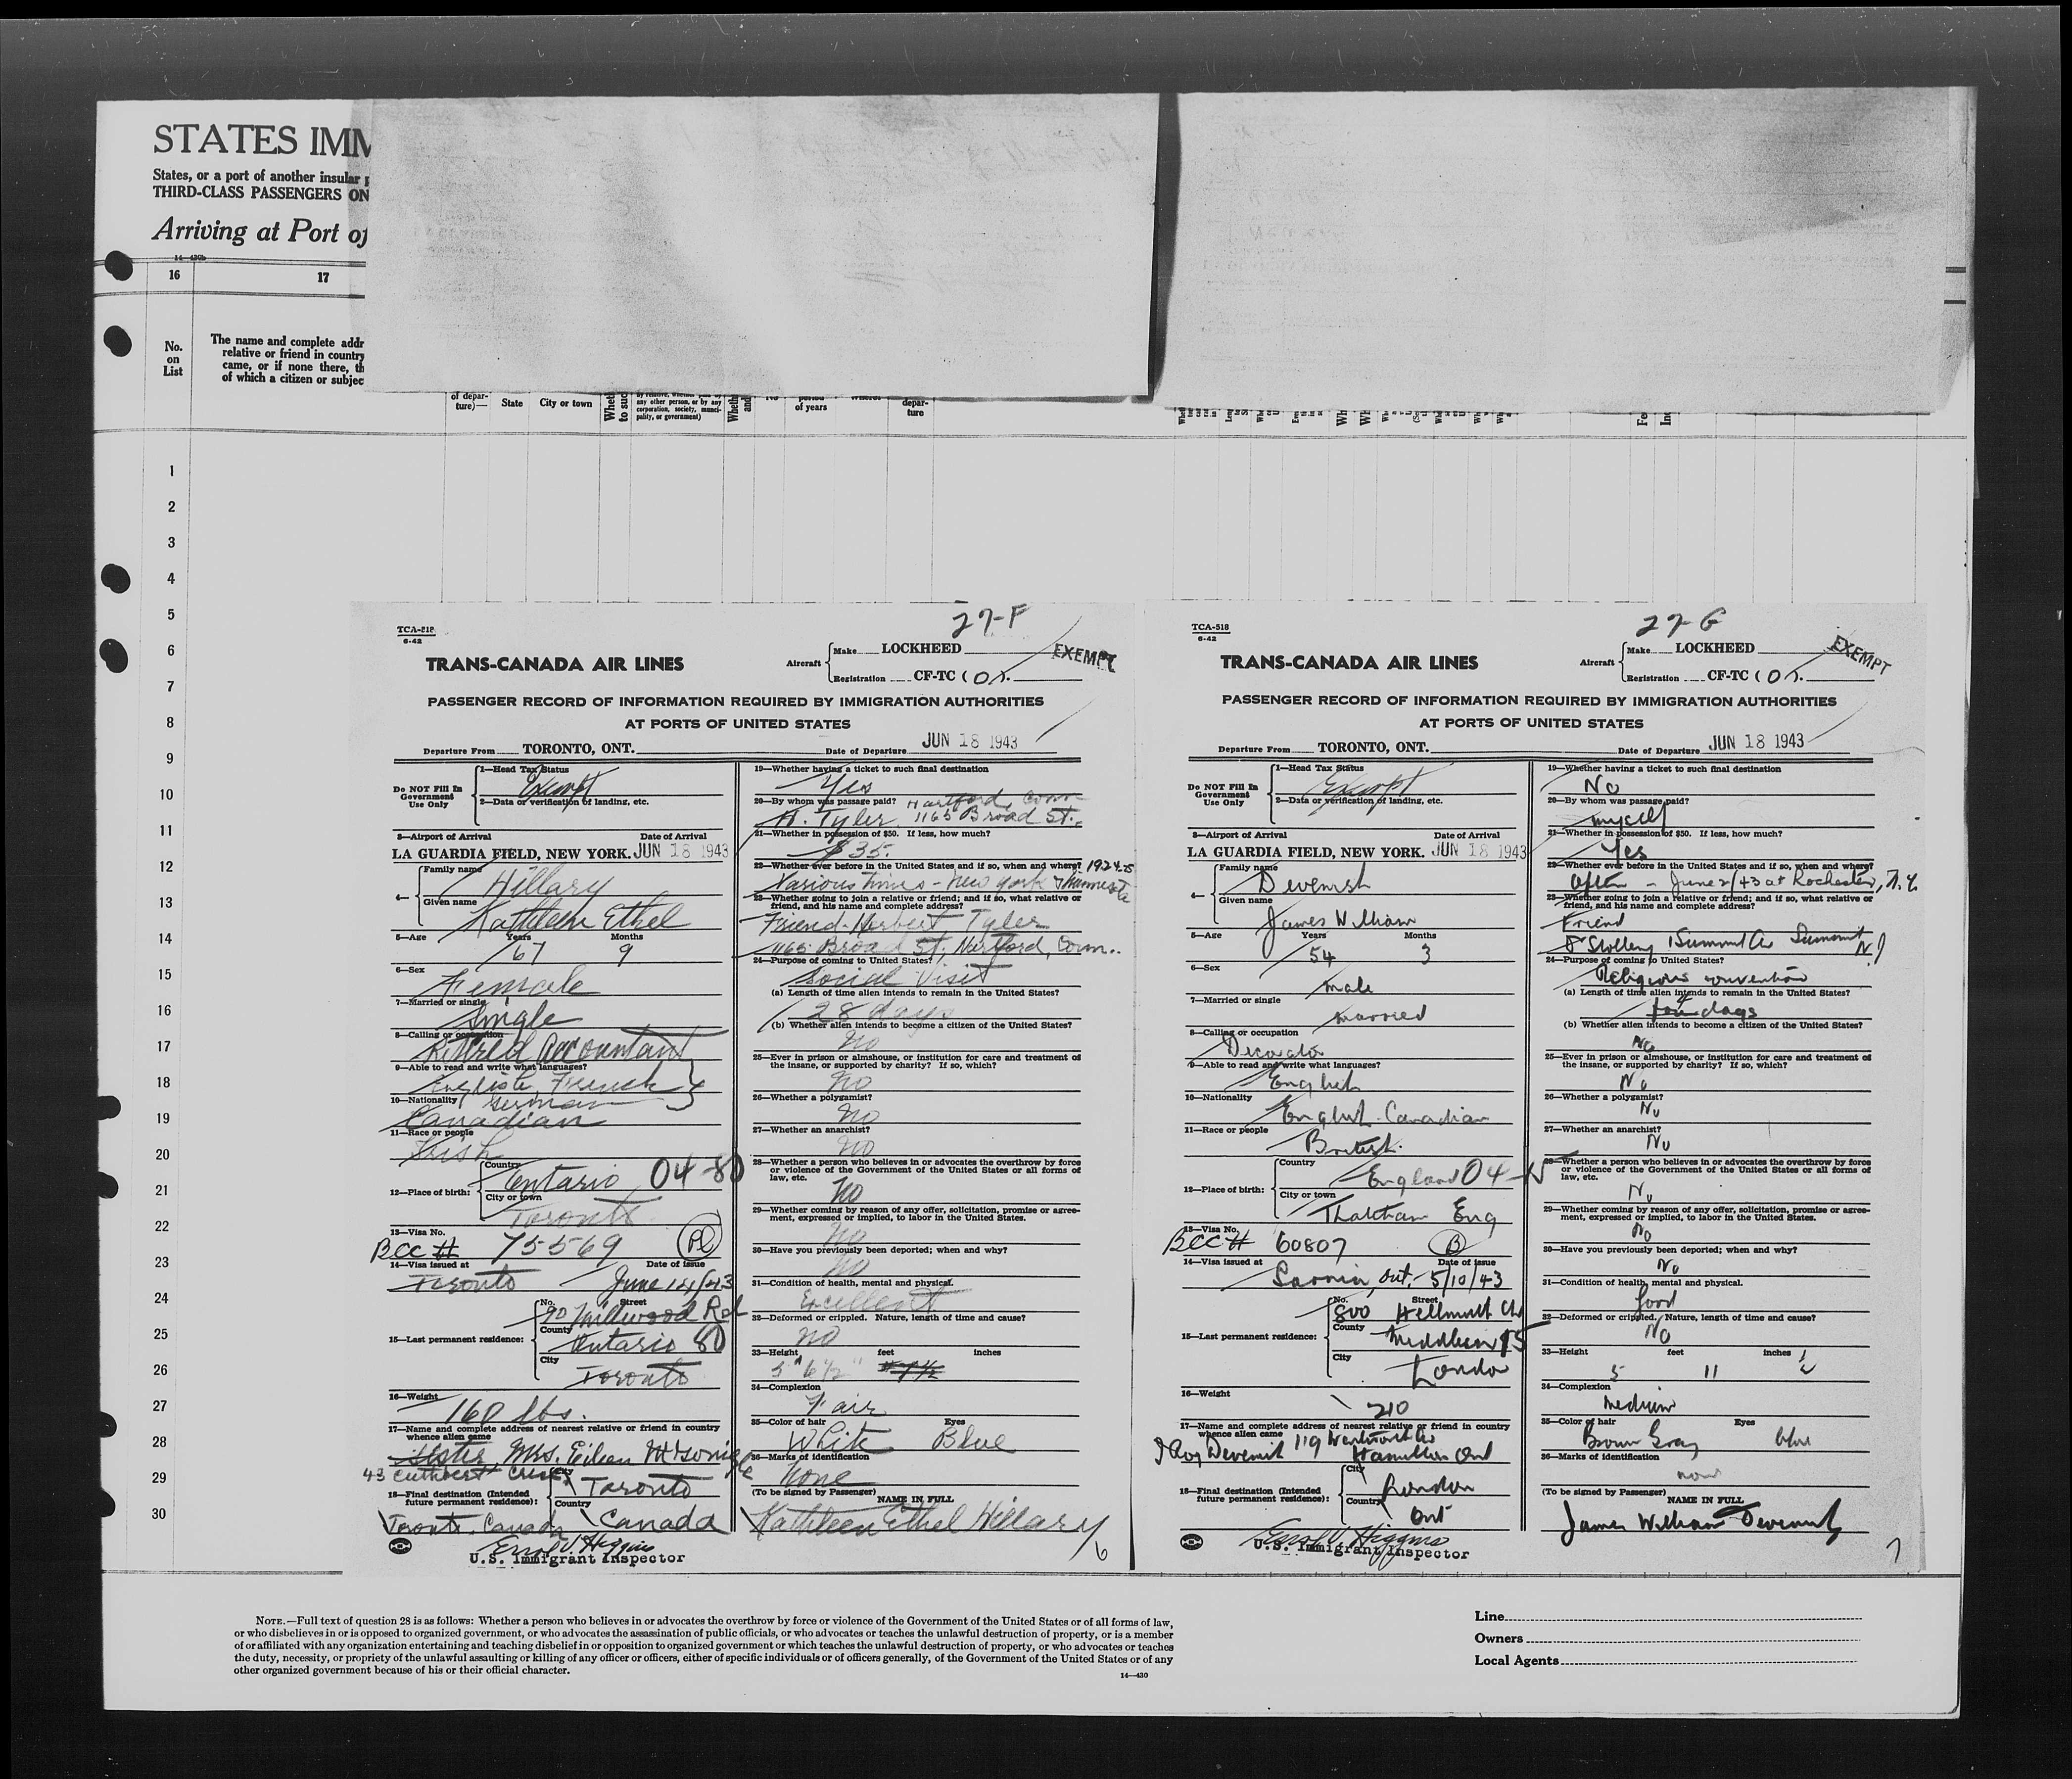 STATES IMM
States, or a port of another insular p
THIRD-CLASS PASSENGERS ON
Arriving at Port of
14—430b
16 17
No.
on
List
The name and complete addr
relative or friend in country
came, or if none there, th
of which a citizen or subjec
of depar-
ture)—
State
City or town
Wheth
to suc
any other person, or by any
corporation, society, munici-
pality, or government)
Wheth
and
of years
depar-
ture
1
2
3
4
5
6
7
8
9
10
11
12
13
14
15
16
17
18
19
20
21
22
23
24
25
26
27
28
29
30
27-F
TCA-518
6-42
TRANS-CANADA AIR LINES
Aircraft
Make LOCKHEED
Registration CF-TC
EXEMPT
PASSENGER RECORD OF INFORMATION REQUIRED BY IMMIGRATION AUTHORITIES
AT PORTS OF UNITED STATES
Departure From TORONTO, ONT. Date of Departure JUN 18 1943
Do NOT Fill In
Government
Use Only
1—Head Tax Status
Exempt
2—Data or verification of landing, etc.
3—Airport of Arrival Date of Arrival
LA GUARDIA FIELD, NEW YORK. JUN 18 1943
4— Family name
Hillary
Given name
Kathleen Ethel
5—Age Years Months
67 9
6—Sex
Female
7—Married or single
Single
8—Calling or occupation
Retired Accountant
9—Able to read and write what languages?
English, French
German
10—Nationality
Canadian
11—Race or people
Irish
12—Place of birth:
Country
Ontario 04-80
City or town
Toronto
13—Visa No.
BCC # 75569
14—Visa issued at Date of issue
Toronto June 14/43
15—Last permanent residence:
No. Street
90 Millwood Rd
County
Ontario 80
City
Toronto
16—Weight
160 lbs.
17—Name and complete address of nearest relative or friend in country
whence alien came
Sister, Mrs. Eileen McGonigle
43 Cuthbert Cres.
18—Final destination (Intended
future permanent residence):
City
Toronto
Country
Toronto, Canada Canada
Errol V. Higgins
U.S. Immigrant Inspector
19—Whether having a ticket to such final destination
Yes
20—By whom was passage paid? Hartford, Conn.
H. Tyler 1165 Broad St.,
21—Whether in possession of $50. If less, how much?
$35.
22—Whether ever before in the United States and if so, when and where? 1924-5
Various times - New York &
23—Whether going to join a relative or friend; and if so, what relative or
friend, and his name and complete address?
Friend - Herbert Tyler
1165 Broad St., Hartford, Conn.
24—Purpose of coming to United States?
Social Visit
(a) Length of time alien intends to remain in the United States?
28 days
(b) Whether alien intends to become a citizen of the United States?
No
25—Ever in prison or almshouse, or institution for care and treatment of
the insane, or supported by charity? If so, which?
No
26—Whether a polygamist?
No
27—Whether an anarchist?
No
28—Whether a person who believes in or advocates the overthrow by force
or violence of the Government of the United States or all forms of
law, etc.
No
29—Whether coming by reason of any offer, solicitation, promise or agree-
ment, expressed or implied, to labor in the United States.
No
30—Have you previously been deported; when and why?
No
31—Condition of health, mental and physical.
Excellent
32—Deformed or crippled. Nature, length of time and cause?
No
33—Height feet inches
5' 6½"
34—Complexion
Fair
35—Color of hair Eyes
White Blue
36—Marks of identification
None
(To be signed by Passenger)
NAME IN FULL
Kathleen Ethel Hillary
6
27-G
TCA-518
6-42
TRANS-CANADA AIR LINES
Aircraft
Make LOCKHEED
Registration CF-TC
EXEMPT
PASSENGER RECORD OF INFORMATION REQUIRED BY IMMIGRATION AUTHORITIES
AT PORTS OF UNITED STATES
Departure From TORONTO, ONT. Date of Departure JUN 18 1943
Do NOT Fill In
Government
Use Only
1—Head Tax Status
Exempt
2—Data or verification of landing, etc.
3—Airport of Arrival Date of Arrival
LA GUARDIA FIELD, NEW YORK. JUN 18 1943
4— Family name
Devenish
Given name
James William
5—Age Years Months
54 3
6—Sex
male
7—Married or single
married
8—Calling or occupation
Decorator
9—Able to read and write what languages?
English
10—Nationality
English-Canadian
11—Race or people
British
12—Place of birth:
Country
England 04-15
City or town
Thatcham Eng
13—Visa No.
BCC # 60807 B
14—Visa issued at Date of issue
Sarnia, Ont. 5/10/43
15—Last permanent residence:
No. Street
800 Hellmuth
County
Middlesex 15
City
London
16—Weight
210
17—Name and complete address of nearest relative or friend in country
whence alien came
Roy Devenish 119 Wentworth
Hamilton Ont
18—Final destination (Intended
future permanent residence):
City
London
Country
Ont
Errol V. Higgins
U.S. Immigrant Inspector
19—Whether having a ticket to such final destination
No
20—By whom was passage paid?
myself
21—Whether in possession of $50. If less, how much?
Yes
22—Whether ever before in the United States and if so, when and where?
Often - June 2/43 at Rochester, N.Y.
23—Whether going to join a relative or friend; and if so, what relative or
friend, and his name and complete address?
Friend
1 Summit Av Summit N.J
24—Purpose of coming to United States?
Religious convention
(a) Length of time alien intends to remain in the United States?
4 days
(b) Whether alien intends to become a citizen of the United States?
No
25—Ever in prison or almshouse, or institution for care and treatment of
the insane, or supported by charity? If so, which?
No
26—Whether a polygamist?
No
27—Whether an anarchist?
No
28—Whether a person who believes in or advocates the overthrow by force
or violence of the Government of the United States or all forms of
law, etc.
No
29—Whether coming by reason of any offer, solicitation, promise or agree-
ment, expressed or implied, to labor in the United States.
No
30—Have you previously been deported; when and why?
No
31—Condition of health, mental and physical.
good
32—Deformed or crippled. Nature, length of time and cause?
No
33—Height feet inches
5 11 ½
34—Complexion
Medium
35—Color of hair Eyes
Brown Gray blue
36—Marks of identification
none
(To be signed by Passenger)
NAME IN FULL
James William Devenish
7
NOTE.—Full text of question 28 is as follows: Whether a person who believes in or advocates the overthrow by force or violence of the Government of the United States or of all forms of law,
or who disbelieves in or is opposed to organized government, or who advocates the assassination of public officials, or who advocates or teaches the unlawful destruction of property, or is a member
of or affiliated with any organization entertaining and teaching disbelief in or opposition to organized government or which teaches the unlawful destruction of property, or who advocates or teaches
the duty, necessity, or propriety of the unlawful assaulting or killing of any officer or officers, either of specific individuals or of officers generally, of the Government of the United States or of any
other organized government because of his or their official character.
14—430
Line
Owners
Local Agents